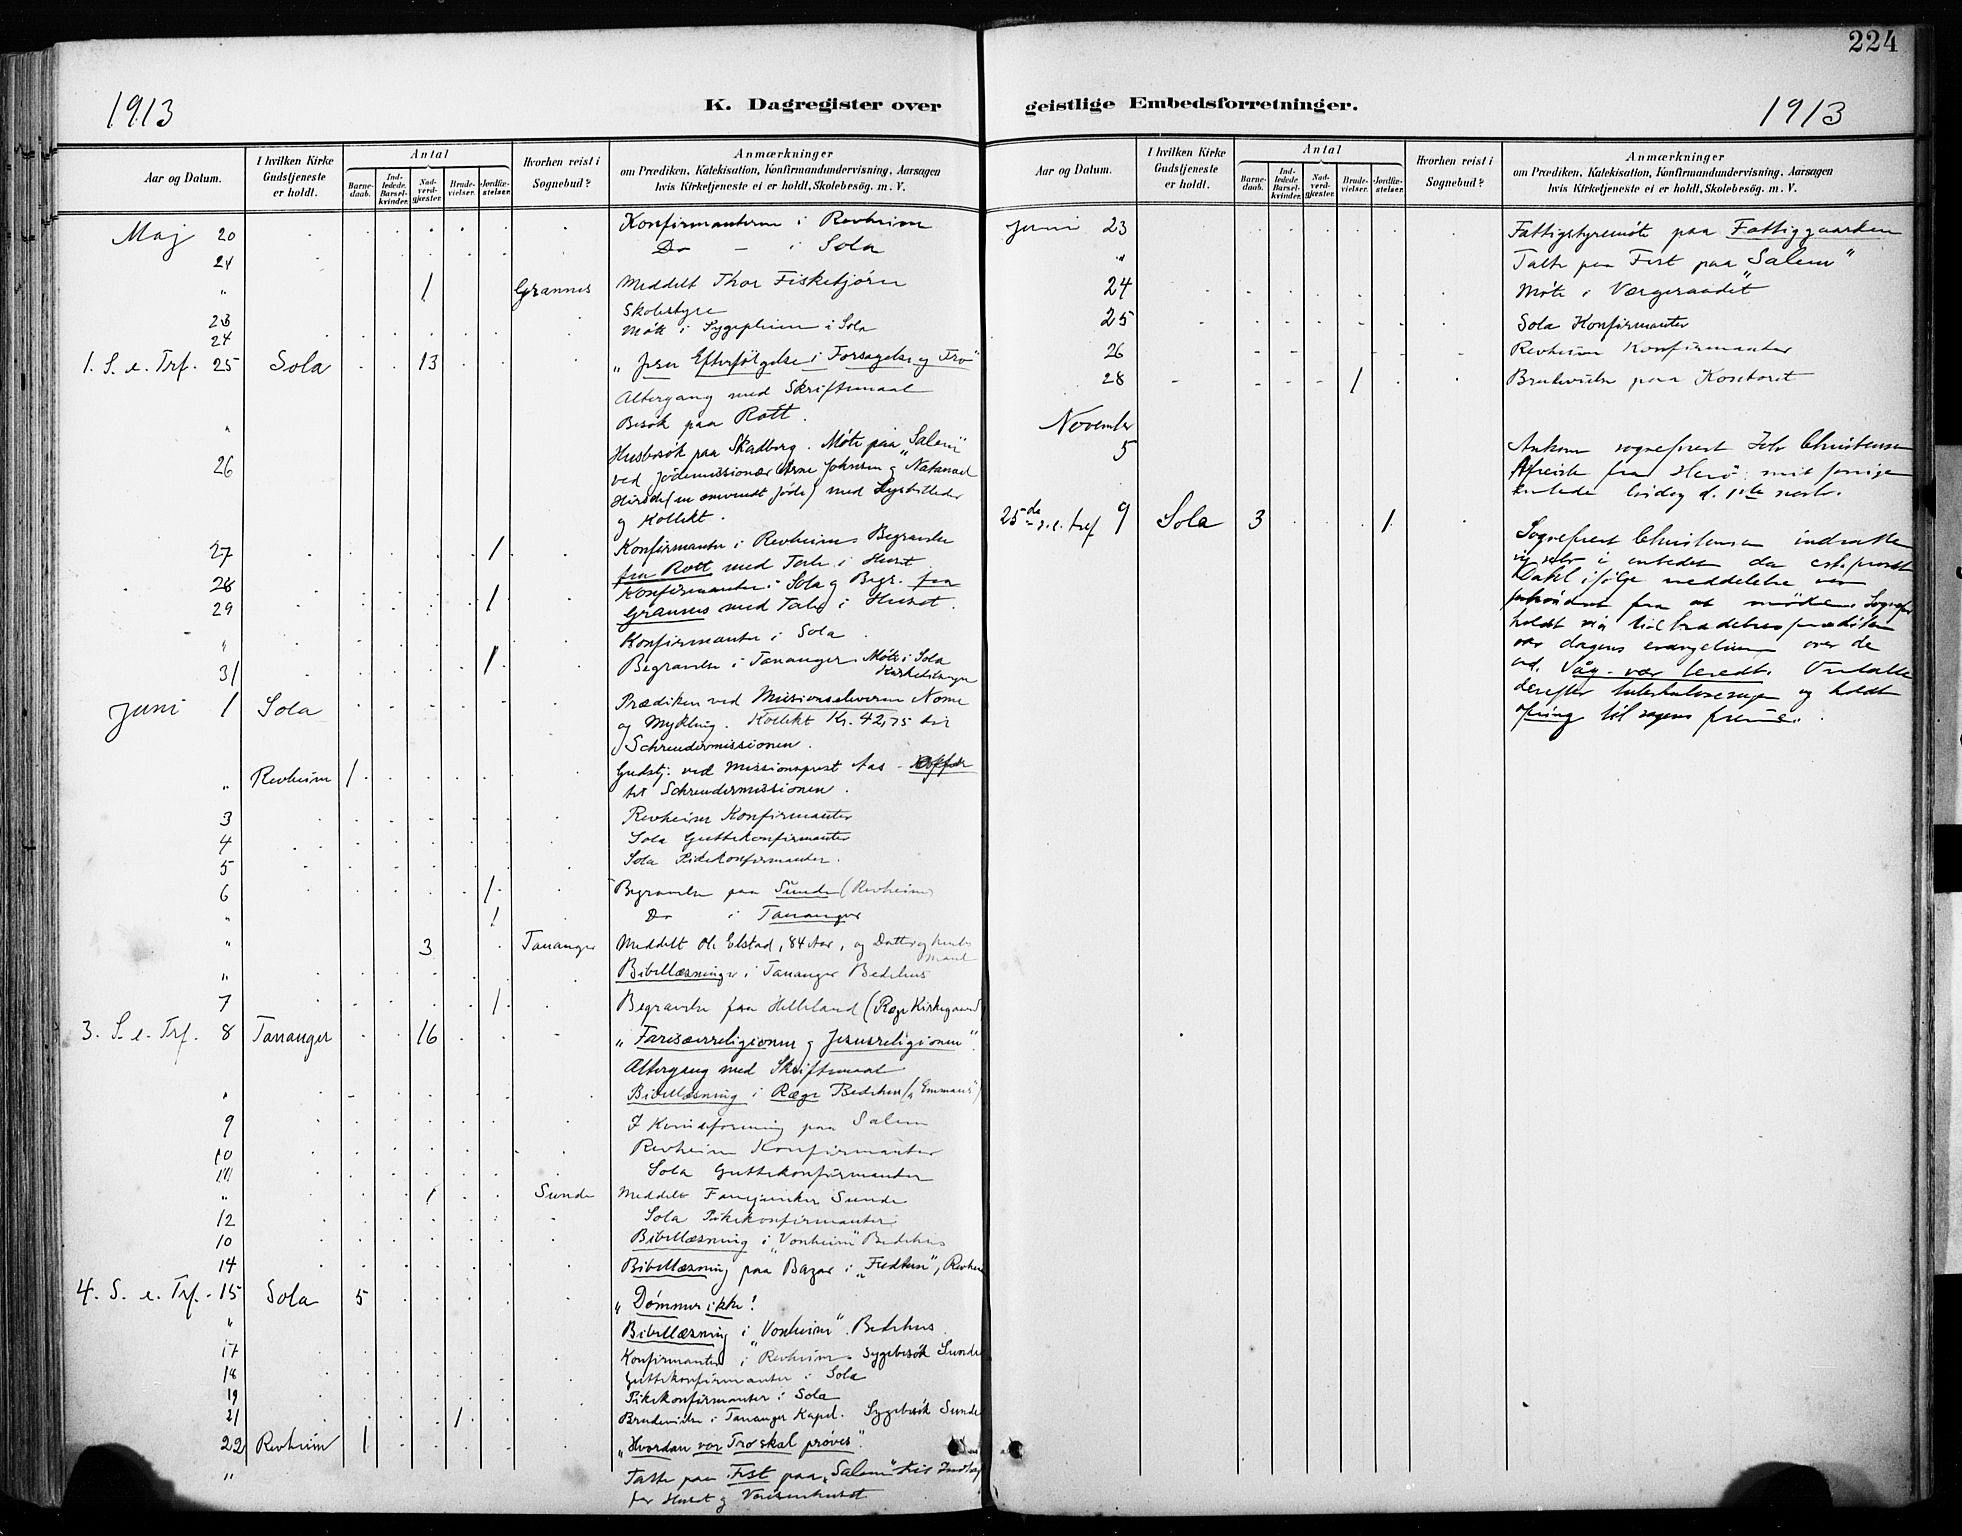 224
1913
K. Dagregister over
Aar og Datum.
I hvilken Kirke Gudstjeneste er holdt.
Antal
Barnedaab.
Indledede Barselkvinder.
Nadverdgjæster.
Brudevielser.
Jordfæstelser.
Hvorhen reist i Sognebud?
Anmærkninger
om Prædiken, Katekisation, Konfirmandundervisning, Aarsagen
hvis Kirketjeneste ei er holdt, Skolebesøg. m. V.
Maj 20 Konfirmanterne i Revheim
Do – i Sola
24
" 1 Grannes Meddelt Thor Fiskebjørn
23 Skolestyre
24 Møte i Sygepleien i Sola
1. S. e. Trf. 25 Sola 13 „Jesu Efterfølgelse i Forsagelse og Tro"
Altergang med Skriftemaal
" Besøk paa Rott.
26 Husbesøk paa Skadberg. Møte paa „Salem"
ved Jødemissionær Arne Johnsen og Natanael
(en omvendt Jøde) med Lysbilleder
og Kollekt.
27 1 Konfirmanter i Revheim. Begravelse
fra Rott med Tale i Huset
28 Konfirmanter i Sola og Begr. fra
29 1 Grannes med Tale i Huset.
" Konfirmanter i Sola
31 1 Begravelse i Tananger. Møte i Sola
Kirketilsyn
Juni 1 Sola Prædiken ved Missionseleverne Nome
og Mykling. Kollekt Kr. 42,75 til
Schreudermissionen.
" Revheim 1 Gudstj. ved Missionsprest Aas – Offer
til Schreudermissionen.
3 Revheim Konfirmanter
4 Sola Guttekonfirmanter
5 Sola Pikekonfirmanter.
6 1 Begravelse paa Sunde (Revheim)
" 1 Do i Tananger
" 3 Tananger Meddelt Ole Elstad, 84 Aar, og Datter og hendes
Mand
" Bibellæsning i Tananger Bedehus
7 1 Begravelse fra Helleland (Ræge Kirkegaard)
3. S. e. Trf. 8 Tananger 16 „Farisæerreligionen og Jesusreligionen".
Altergang med Skriftemaal
" Bibellæsning i Ræge Bedehus („Emmaus")
9 I Kvindeforening paa Salem
10 Revheim Konfirmanter
11 Sola Guttekonfirmanter
" 1 Sunde Meddelt Sunde
12 Sola Pikekonfirmanter
10 Bibellæsning i „Vonheim" Bedehus
14 Bibellæsning paa Bazar i „Fredheim", Revheim
4. S. e. Trf. 15 Sola 5 „Dømmer ikke!
" Bibellæsning i „Vonheim". Bedehus
17 Konfirmanter i Revheim. Sygebesøk Sunde
18 Guttekonfirmanter i Sola
19 Pikekonfirmanter i Sola
21 1 Brudevielse i Tananger Kapel. Sygebesøk Sunde
22 Revheim 1 „Hvordan vor Tro skal prøves".
" Talte paa Fest paa „Salem" til Indtægt
for Huset og Vaisenhuset
geistlige Embedsforretninger.
1913
Aar og Datum.
I hvilken Kirke Gudstjeneste er holdt.
Antal
Barnedaab.
Indledede Barselkvinder.
Nadverdgjæster.
Brudevielser.
Jordfæstelser.
Hvorhen reist i Sognebud?
Anmærkninger
om Prædiken, Katekisation, Konfirmandundervisning, Aarsagen
hvis Kirketjeneste ei er holdt, Skolebesøg. m. V.
Juni 23 Fattigstyremøte paa Fattiggaarden
" Talte paa Fest paa „Salem"
24 Møte i Værgeraadet
25 Sola Konfirmanter
26 Revheim Konfirmanter
28 1 Brudevielse paa Kontoret
November
5 Ankom sogneprest Christensen
Afreiste fra Herø mit forrige
embede d. 1ste novb.
25de s. e. tref 9 Sola 3 1 Sogneprest Christensen indsatte
sig selv i embedet da
Dahl ifølge meddelelse var
forhindret fra at møde. Sognepr
holdt sin tiltrædelsesprædiken
over dagens evangelium over de
ord. Våg – vær beredt. Omtalte
derefter tuberkulosesagen og holdt
ofring til sagens fremme.